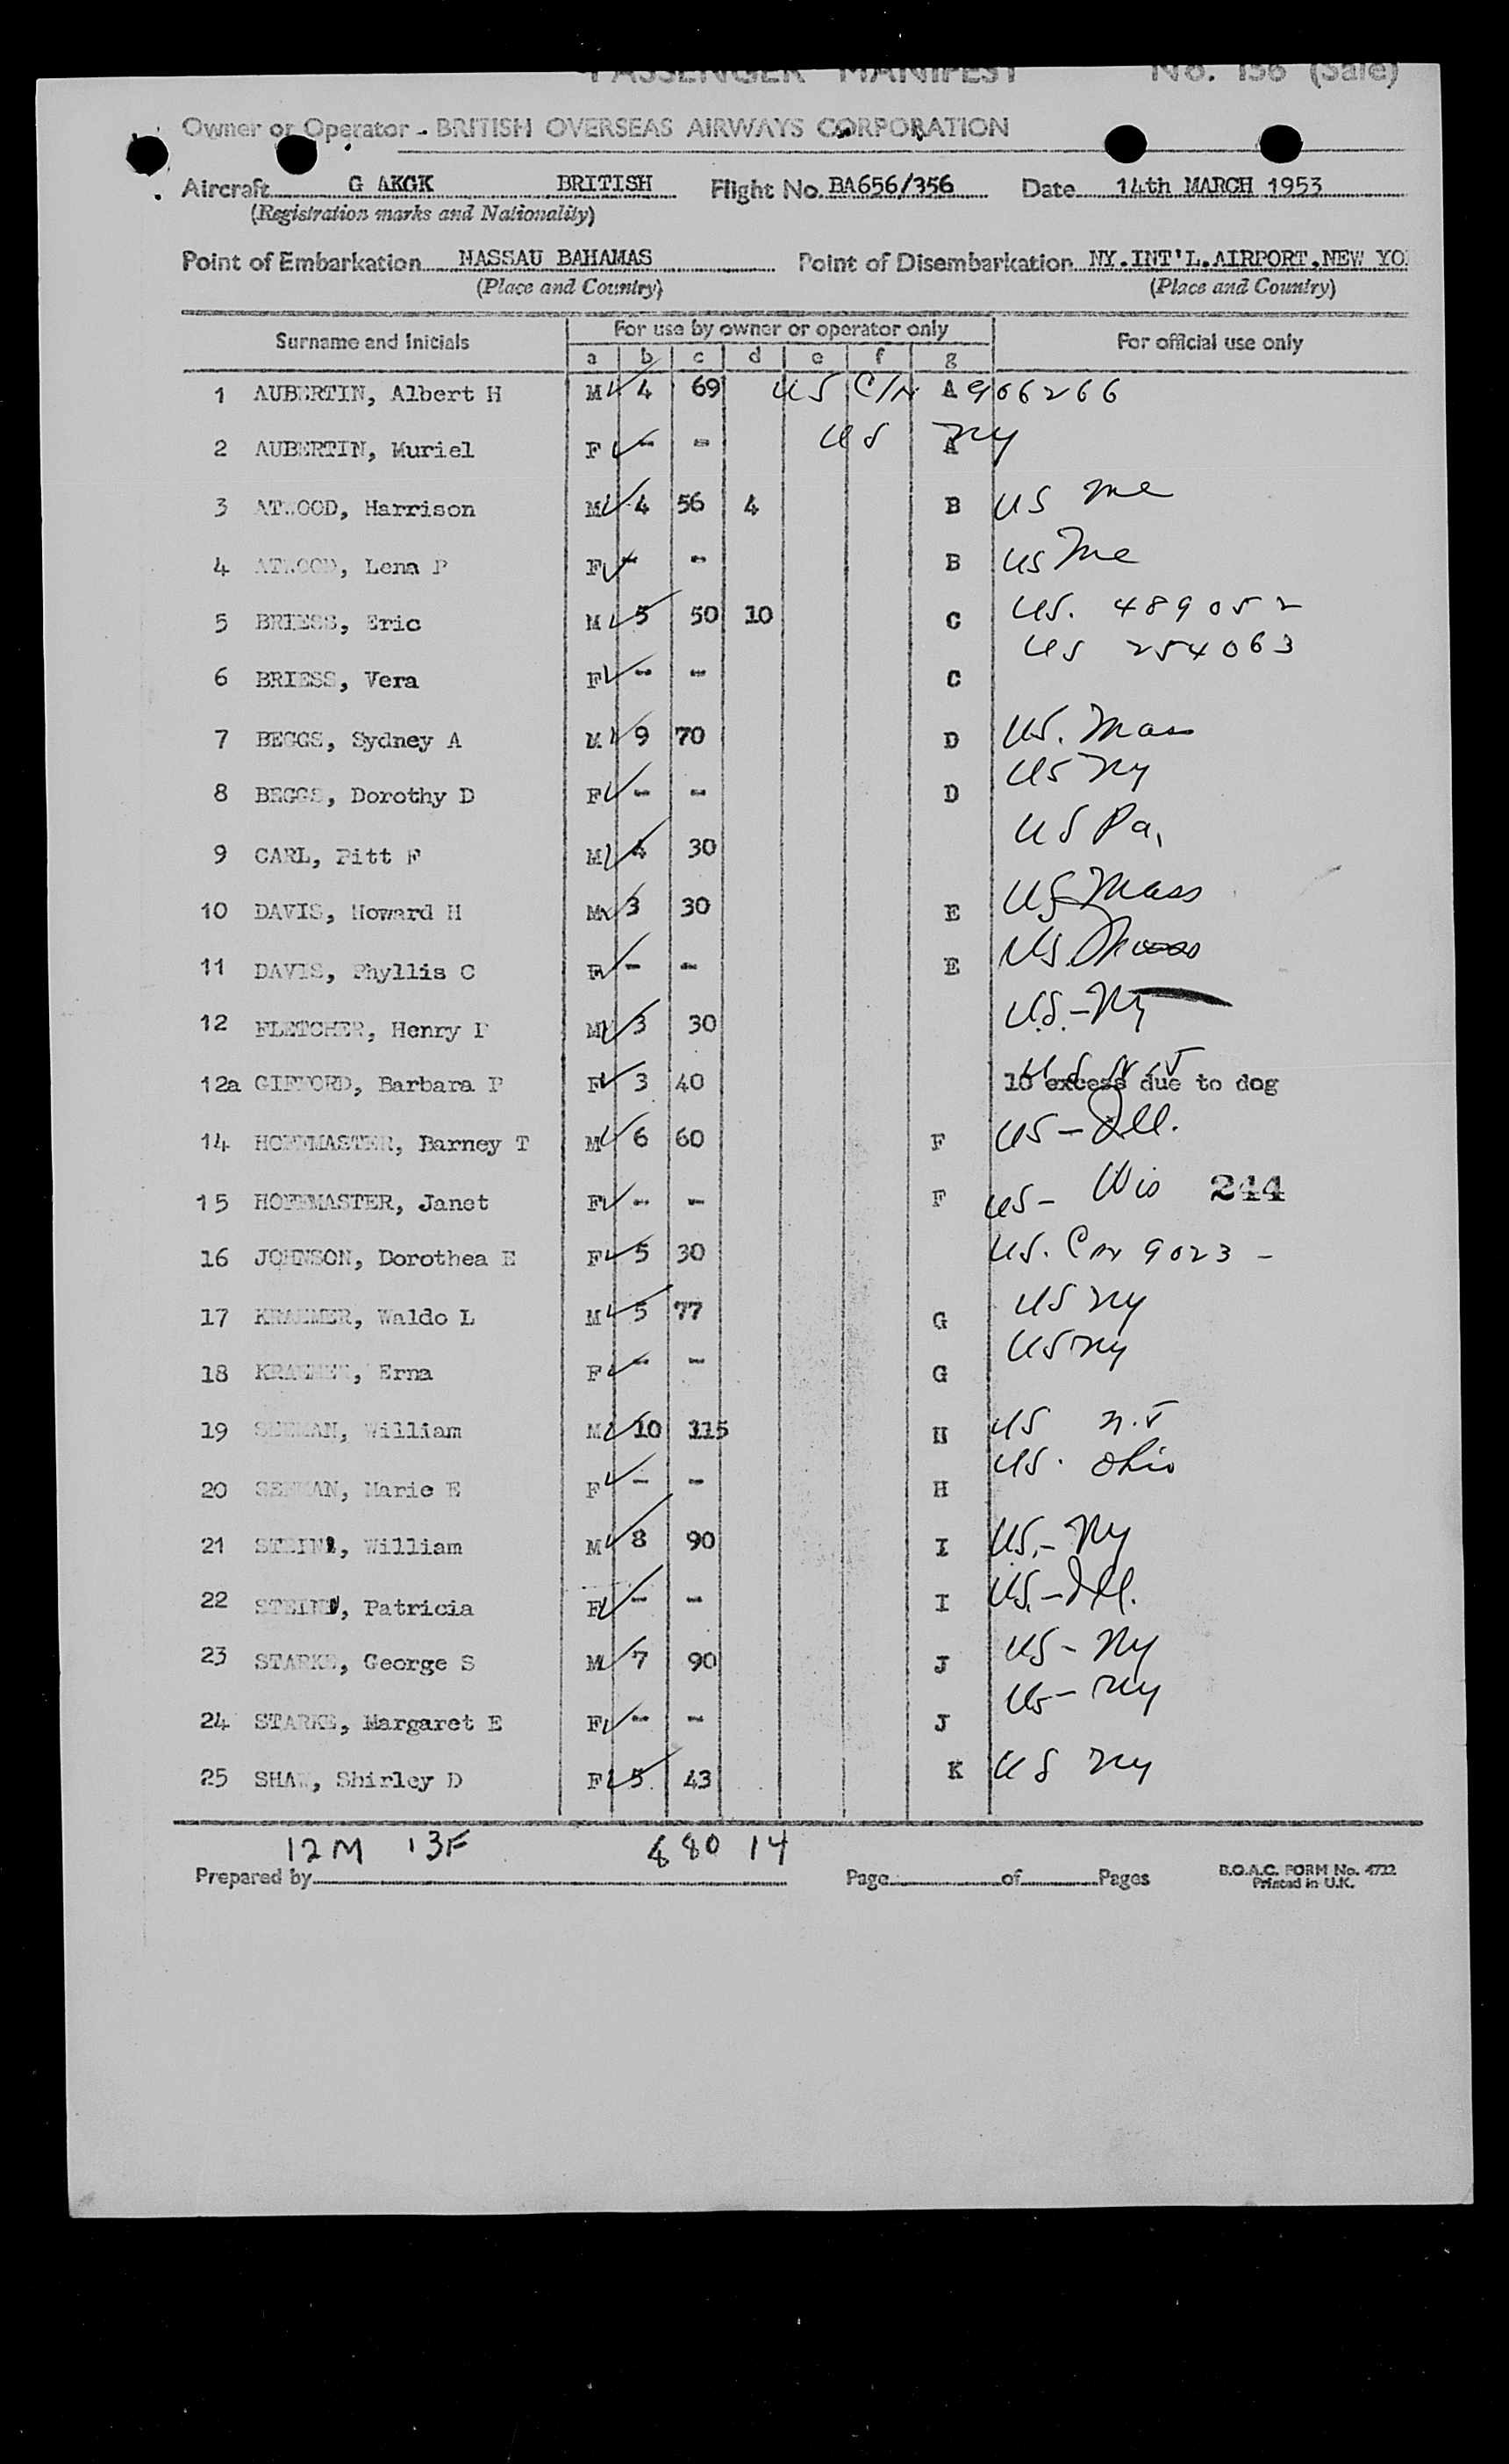 PASSENGER MANIFEST No. 156 (Sale)
Owner or Operator - BRITISH OVERSEAS AIRWAYS CORPORATION
Aircraft G AKGK BRITISH Flight No. BA656/356 Date 14th MARCH 1953
(Registration marks and Nationality)
Point of Embarkation NASSAU BAHAMAS Point of Disembarkation NY.INT'L.AIRPORT.NEW YO
(Place and Country) (Place and Country)
Surname and Initials For use by owner or operator only For official use only
a b c d e f g
1 AUBERTIN, Albert H M 4 69 US C/N A 906266
2 AUBERTIN, Muriel F - - US A NY
3 ATWOOD, Harrison M 4 56 4 B US Me
4 ATWOOD, Lena P F - - B US Me
5 BRIESS, Eric M 5 50 10 C US. 489052
6 BRIESS, Vera F - - C US 254063
7 BEGGS, Sydney A M 9 70 D US. Mass
8 BEGGS, Dorothy D F - - D US NY
9 CARL, Pitt F M 4 30 US Pa.
10 DAVIS, Howard H M 3 30 E US Mass
11 DAVIS, Phyllis C F - - E US. Mass
12 FLETCHER, Henry P M 3 30 U.S. - NY
12a GIFFORD, Barbara P F 3 40 US NJ 10 excess due to dog
14 HOFFMASTER, Barney T M 6 60 F US - Ill.
15 HOFFMASTER, Janet F - - F US - Wis 244
16 JOHNSON, Dorothea E F 5 30 US. C/N 9023 -
17 KRAEMER, Waldo L M 5 77 G US NY
18 KRAEMER, Erna F - - G US NY
19 SEEMAN, William M 10 115 H US N.J
20 SEEMAN, Marie E F - - H US. Ohio
21 William M 8 90 I US. - NY
22 Patricia F - - I US. - Ill.
23 STARKE, George S M 7 90 J US - NY
24 STARKE, Margaret E F - - J US - NY
25 SHAW, Shirley D F 5 43 K US NY
12M 13F 880 14
Prepared by Page of Pages B.O.A.C. FORM No. 4722
Printed in U.K.